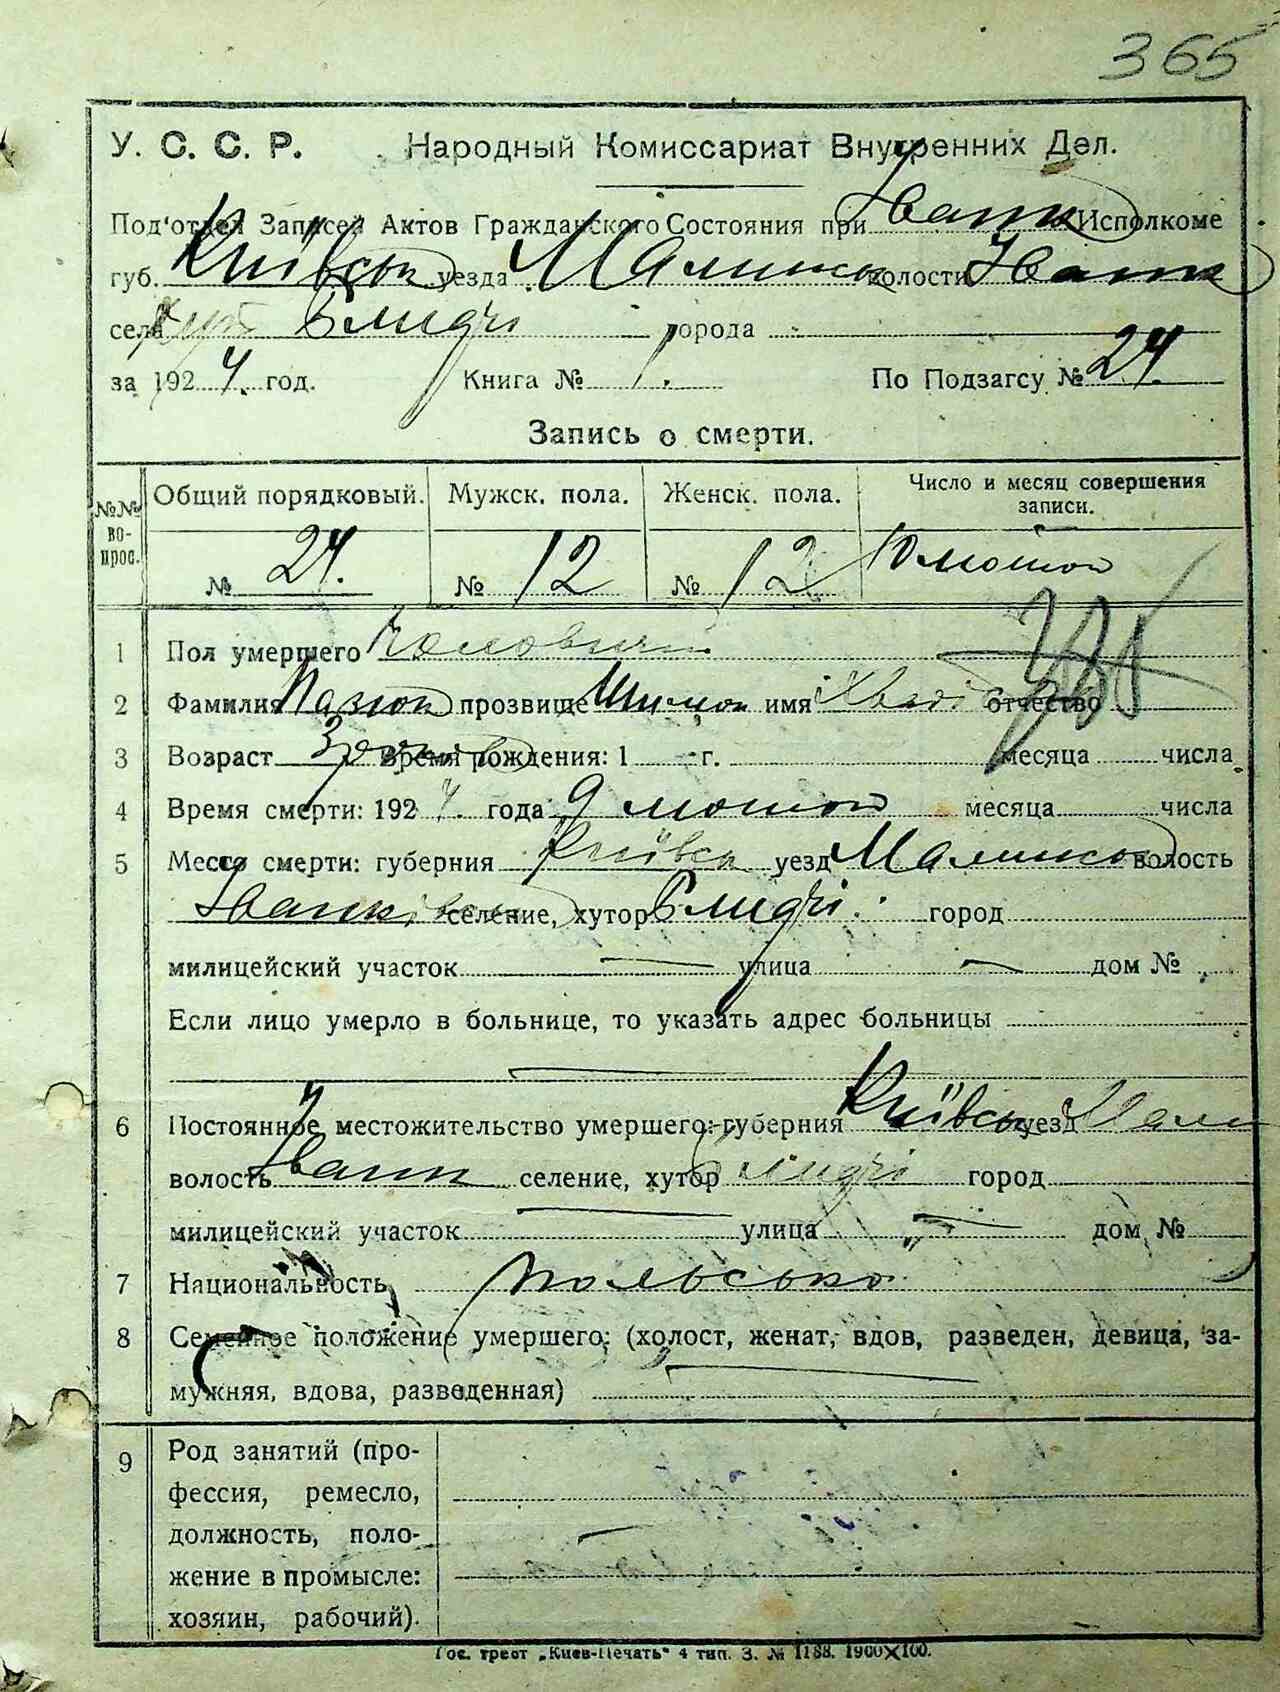 365
У. С. С. Р. Народный Комиссариат Внутренних Дел.
Под'отдел Записей Актов Гражданского Состояния при Іванк Исполкоме
губ. Київськ уезда Малинськ волости Іванк
села хут Блидчі города
за 1924. год. Книга № 1. По Подзагсу № 24.
Запись о смерти.
№№ вопрос. Общий порядковый. Мужск. пола. Женск. пола. Число и месяц совершения записи.
№ 24. № 12 № 12 10 лютого
1 Пол умершего Чоловичий
2 Фамилия прозвище Шимон имя отчество
3 Возраст 3 роки Время рождения: 1 г. месяца числа
4 Время смерти: 1924. года 9 лютого месяца числа
5 Место смерти: губерния Київськ уезд Малинськ волость
Іванківськ селение, хутор Блидчі. город
милицейский участок — улица — дом №
Если лицо умерло в больнице, то указать адрес больницы
—
6 Постоянное местожительство умершего: губерния Київськ уезд Мали
волость Іванк селение, хутор Блидчі город
милицейский участок — улица — дом №
7 Национальность польська
8 Семейное положение умершего: (холост, женат, вдов, разведен, девица, за-
мужняя, вдова, разведенная) —
9 Род занятий (про-
фессия, ремесло,
должность, поло-
жение в промысле:
хозяин, рабочий).
Гос. трест „Киев-Печать" 4 тип. З. № 1188. 1900×100.